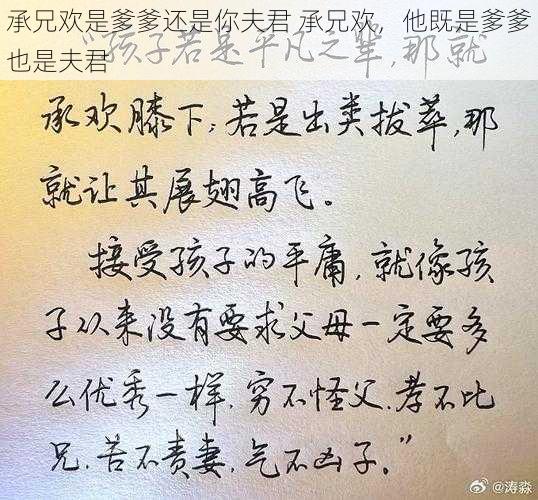 承兄欢是爹爹还是你夫君 承兄欢，他既是爹爹
也是夫君
“孩子若是平凡之辈，那就
承欢膝下；若是出类拔萃，那
就让其展翅高飞。
接受孩子的平庸，就像孩
子从来没有要求父母一定要多
么优秀一样。穷不怪父，孝不比
兄，苦不责妻，气不凶子。”
@涛淼